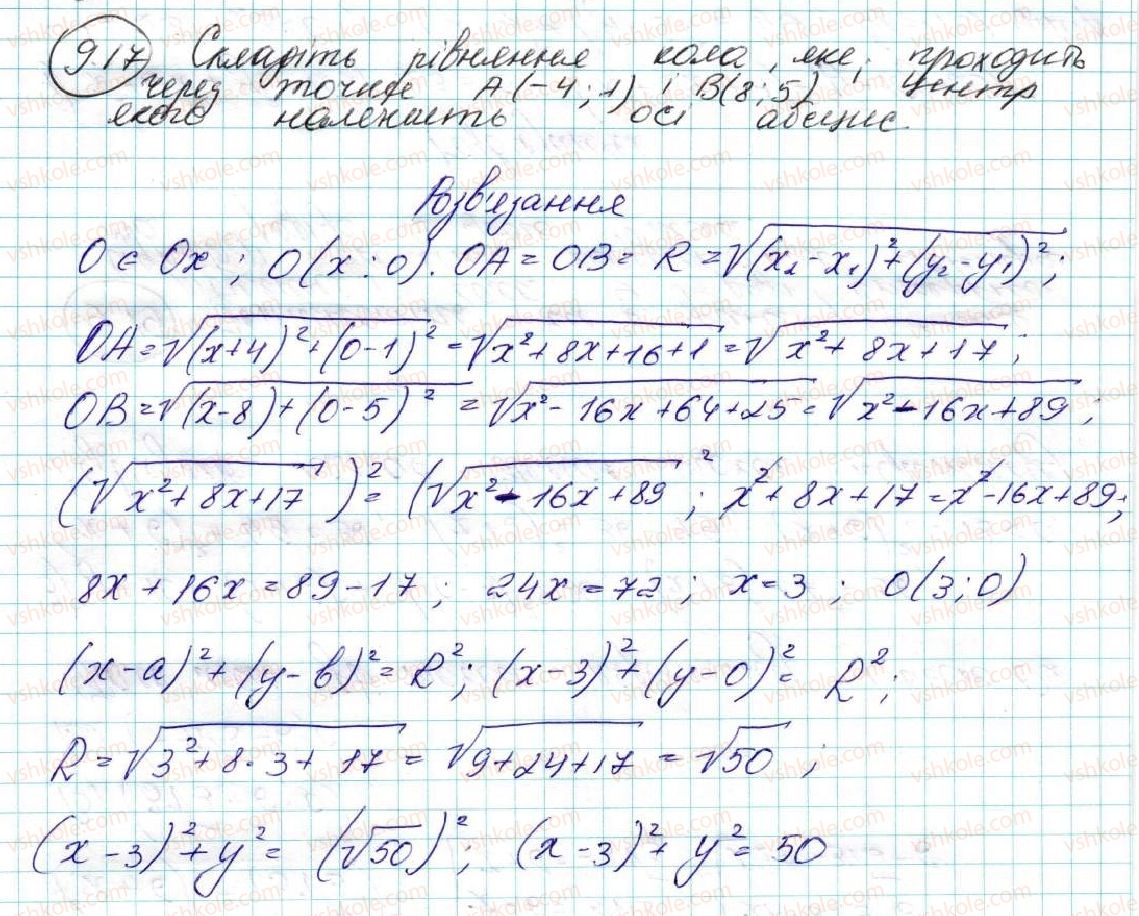 9.17 Складіть рівняння кола, яке, проходить
через точки A(-4;1) і B(8;5) центр
якого належить осі абсцис.
Розв'язання
O ∈ Ox ; O(x;0). OA = OB = R = √((x₂-x₁)²+(y₂-y₁)²);
OA = √((x+4)²+(0-1)²) = √(x²+8x+16+1) = √(x²+8x+17);
OB = √((x-8)+(0-5)²) = √(x²-16x+64+25) = √(x²-16x+89);
(√(x²+8x+17))² = (√(x²-16x+89)²; x²+8x+17 = x²-16x+89;
8x+16x=89-17; 24x=72; x=3; O(3;0)
(x-a)²+(y-b)²=R²; (x-3)²+(y-0)²=R²;
R=√(3²+8·3+17) = √(9+24+17) = √50;
(x-3)²+y²=(√50)²; (x-3)²+y²=50